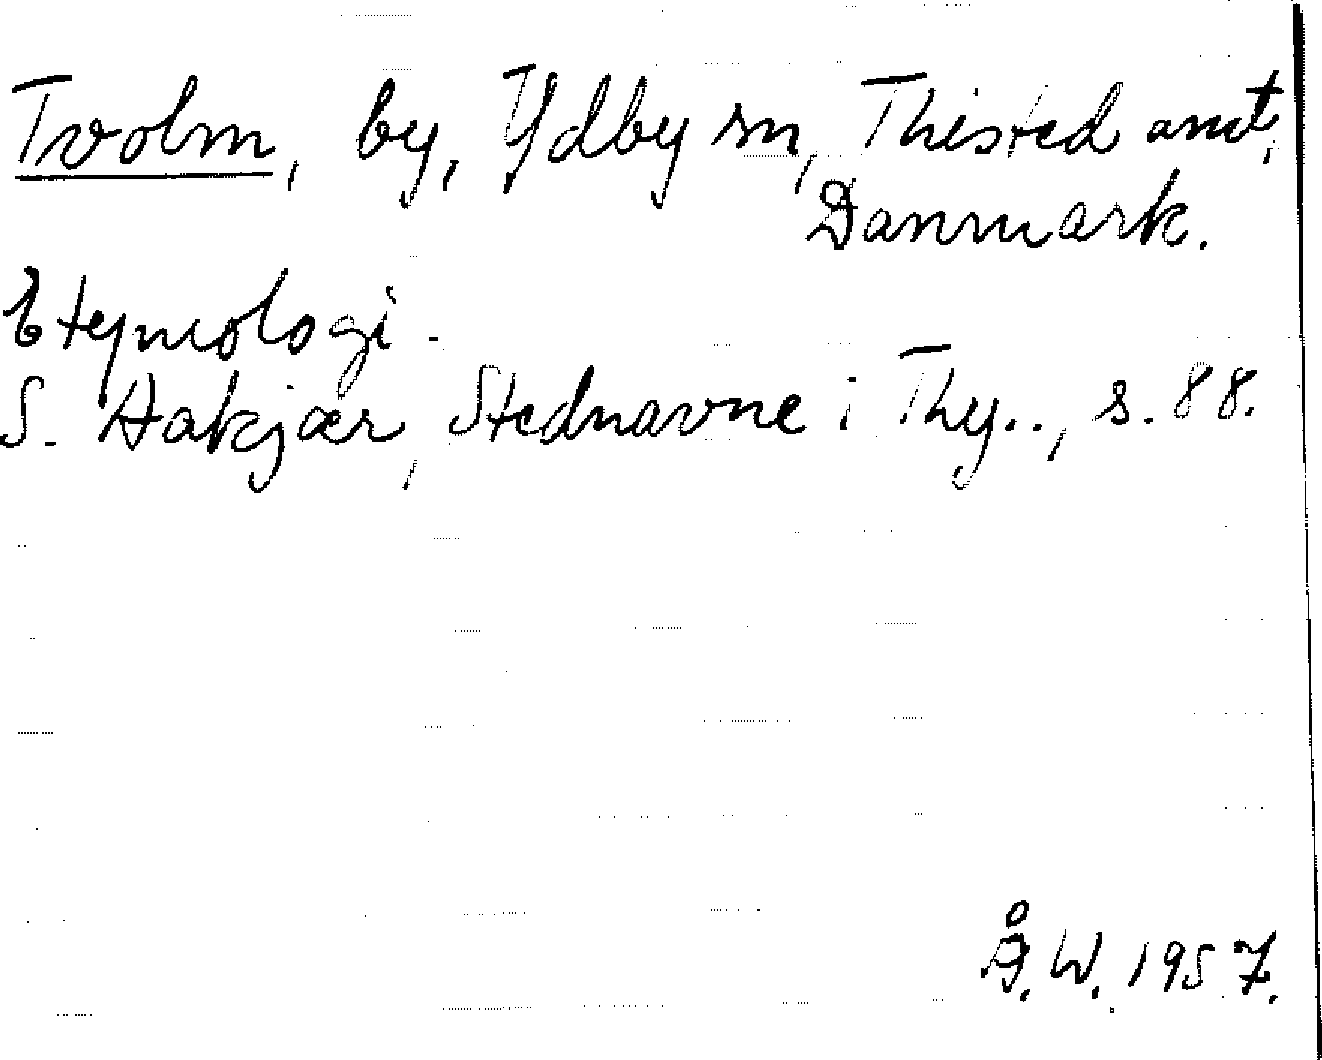 Tvolm, by, Ydby sn, Thisted amt,
Danmark.
Etymologi.
S. Aakjær, Stednavne i Thy.., s. 88.
Å.W. 1957.